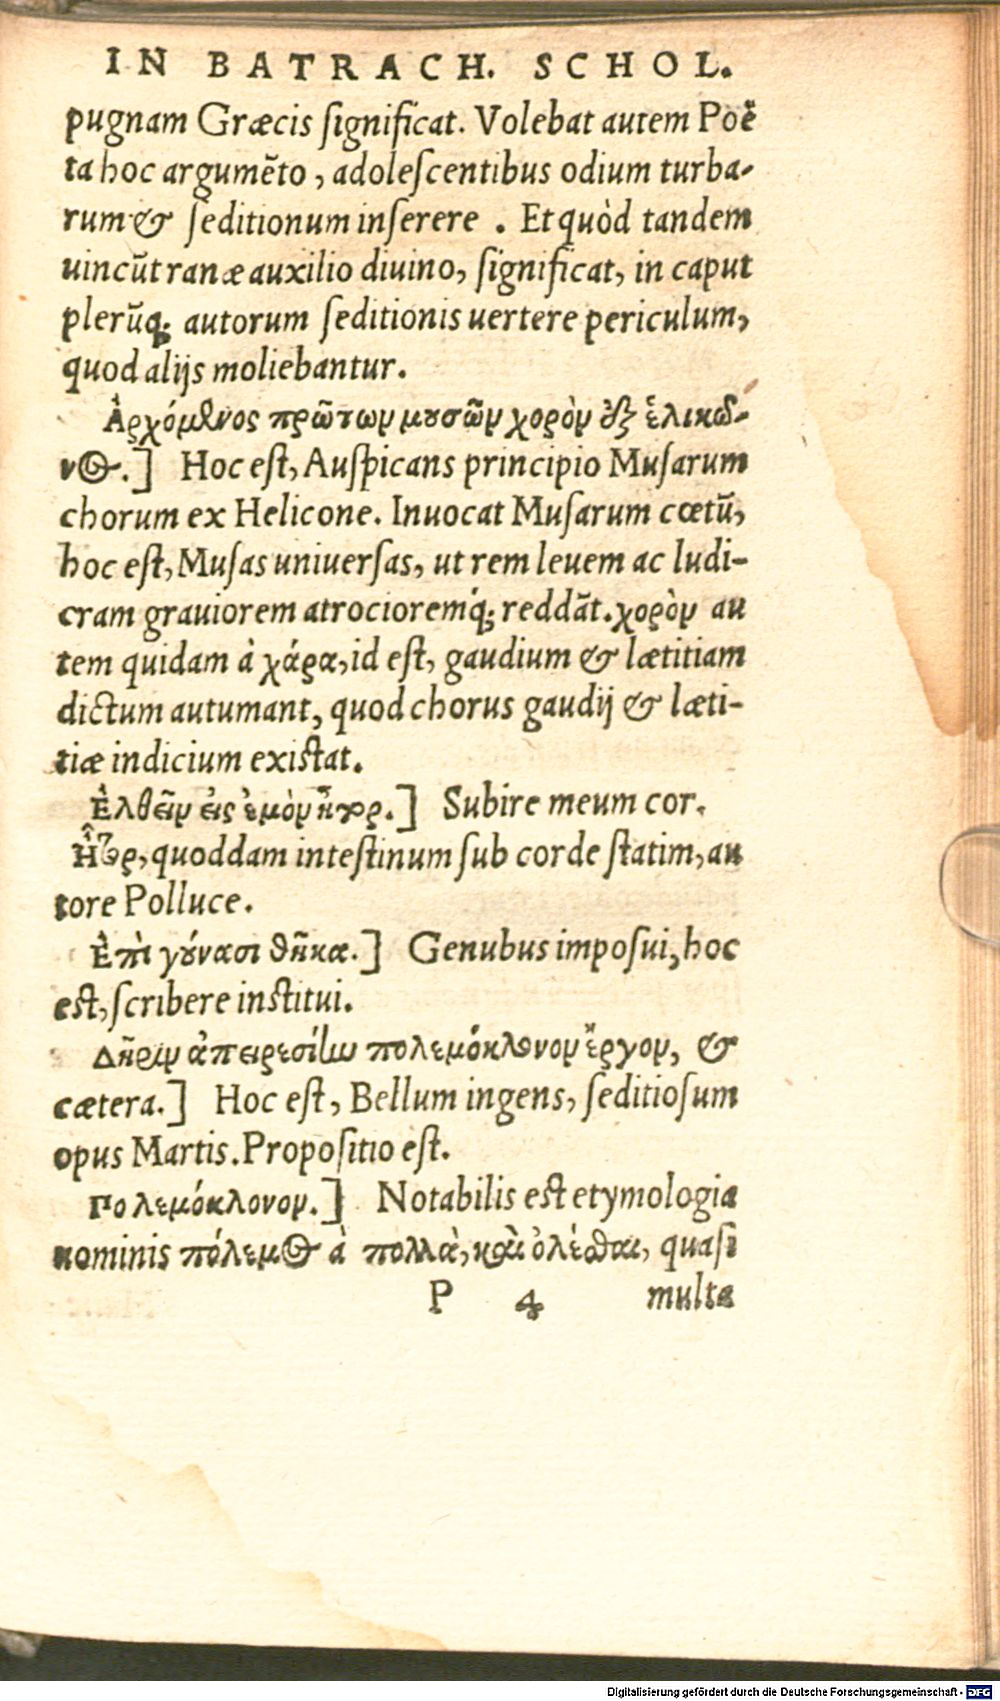 IN BATRACH. SCHOL.
pugnam Græcis ſignificat. Volebat autem Poë
ta hoc argumẽto, adoleſcentibus odium turba-
rum & ſeditionum inſerere. Et quòd tandem
uincũt ranæ auxilio diuino, ſignificat, in caput
plerũq; autorum ſeditionis uertere periculum,
quod alijs moliebantur.
Ἀρχόμενος πρῶτων μουσῶν χορὸν ἐξ ἑλικῶ-
νος.] Hoc eſt, Auſpicans principio Muſarum
chorum ex Helicone. Inuocat Muſarum cœtũ,
hoc eſt, Muſas uniuerſas, ut rem leuem ac ludi-
cram grauiorem atrocioremq́; reddãt. χορὸν au
tem quidam à χάρα, id eſt, gaudium & lætitiam
dictum autumant, quod chorus gaudij & læti-
tiæ indicium exiſtat.
Ἐλθεῖν εἰς ἐμὸν ἦτορ.] Subire meum cor.
Ἦτορ, quoddam inteſtinum ſub corde ſtatim, au
tore Polluce.
Ἐπὶ γούνασι θῆκα.] Genubus impoſui, hoc
eſt, ſcribere inſtitui.
Δῆριν ἀπειρεσίην πολεμόκλονον ἔργον, &
cætera.] Hoc eſt, Bellum ingens, ſeditioſum
opus Martis. Propoſitio eſt.
Πολεμόκλονον.] Notabilis eſt etymologia
nominis πόλεμος à πολλὰ, καὶ ὀλέσθαι, quaſi
P 4 multa
Digitalisierung gefördert durch die Deutsche Forschungsgemeinschaft - DFG